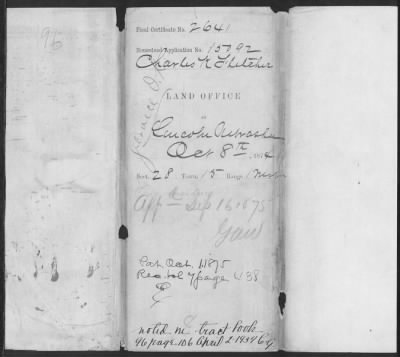 96
Final Certificate No. 2641
Homestead Application No. 15792
Charles K Fletcher
LAND OFFICE
Lincoln Nebraska
Oct 8th, 1874
Sect. 28 Town, 15 Range 1 West
App Sep 16 1875
Gaw
Pat. Oct. 1 1875
Rec vol 7 page 438
noted in tract book
96 page 106 April 2 1934